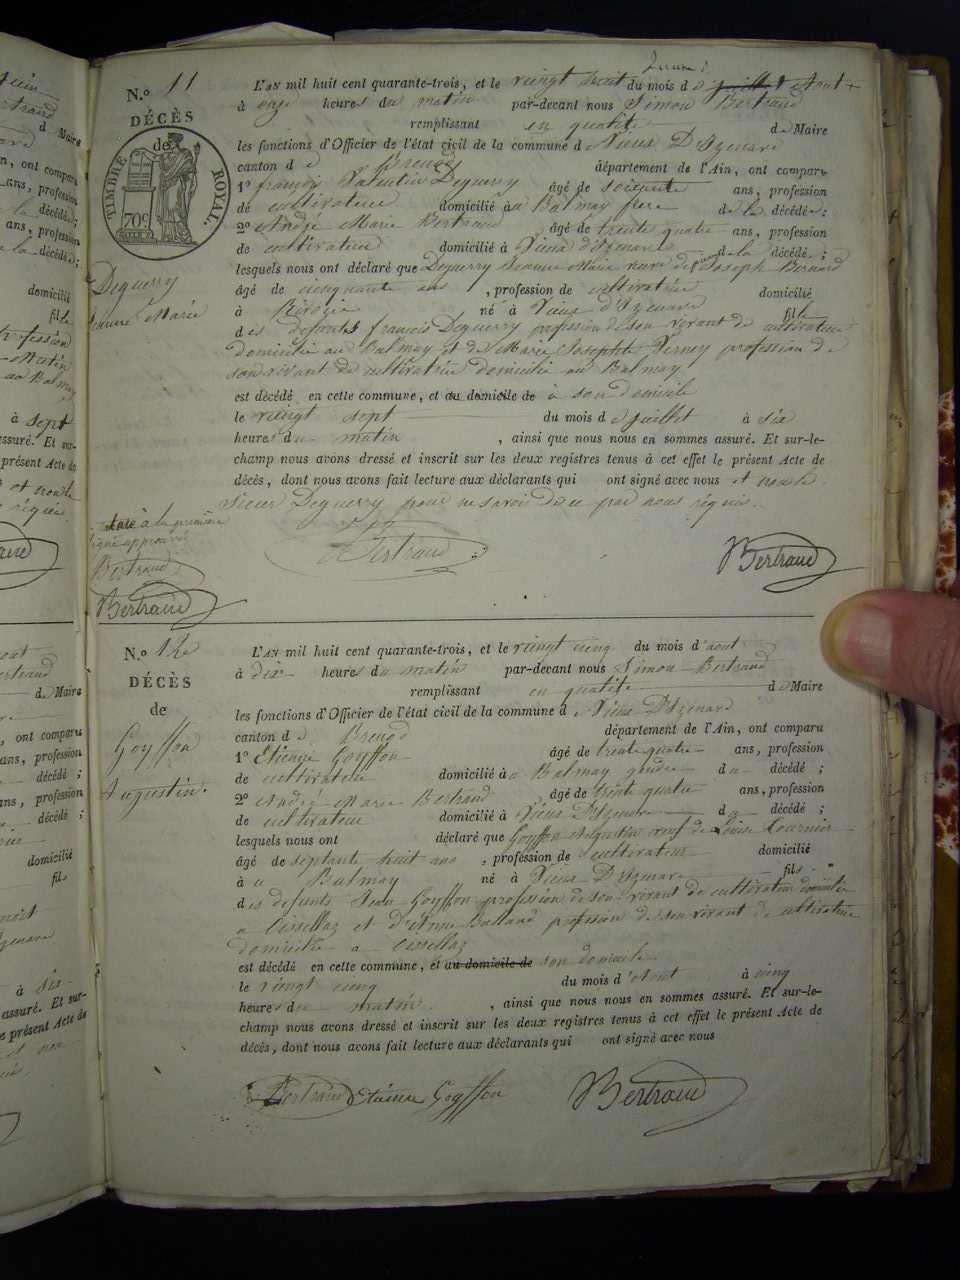 N.º 11
DÉCÈS
de
TIMBRE ROYAL.
70c.
Deguerry
Jeanne Marie
L'AN mil huit cent quarante-trois, et le vingt huit du mois d
à onze heures du matin par-devant nous Simon Bertrand
remplissant en qualité de Maire
les fonctions d'Officier de l'état civil de la commune d Vieux D'Izenave
canton d e Brenod département de l'Ain, ont comparu
1º françois Valentin Deguerry âgé de soixante ans, profession
de cultivateur domicilié à a Balmay frere de la décédée;
2º André Marie Bertrand âgé de trente quatre ans, profession
de cultivateur domicilié à Vieux d'Izenave de la décédée;
lesquels nous ont déclaré que Deguerry Jeanne Marie veuve de Joseph Bernard
âgé de cinquante ans, profession de cultivatrice domicilié
à né à Vieux d'Izenave fille
des defunts françois Deguerry profession de son vivant de cultivateur
domicilié au Balmay et de Marie Josephte Verney profession de
son vivant de cultivatrice domicilié au Balmay
est décédé en cette commune, et au domicile de à son domicile
le vingt sept du mois de juillet à six
heures du matin, ainsi que nous nous en sommes assuré. Et sur-le-
champ nous avons dressé et inscrit sur les deux registres tenus à cet effet le présent Acte de
décès, dont nous avons fait lecture aux déclarants qui ont signé avec nous et non le
sieur Deguerry pour ne savoir de ce par nous réquis.
à la première
ligne approuvée
Bertrand
Bertrand
Bertrand
Bertrand
N.º 12
DÉCÈS
de
Goyffon
Augustin.
L'AN mil huit cent quarante-trois, et le vingt cinq du mois d'aout
à dix heures du matin par-devant nous Simon Bertrand
remplissant en qualité de Maire
les fonctions d'Officier de l'état civil de la commune d Vieux D'Izenave
canton d e Brenod département de l'Ain, ont comparu
1º Etienne Goyffon âgé de trente quatre ans, profession
de cultivateur domicilié à a Balmay gendre du décédé;
2º André Marie Bertrand âgé de trente quatre ans, profession
de cultivateur domicilié à Vieux D'Izenave du décédé;
lesquels nous ont déclaré que Goyffon Augustin veuf de Louise Tournier
âgé de septante huit ans, profession de cultivateur domicilié
à a Balmay né à Vieux D'Izenave fils
des defunts Jean Goyffon profession de son vivant de cultivateur domicilié
a Oissellaz et d'Anne Balland profession de son vivant de cultivatrice
domicilié a Oissellaz
est décédé en cette commune, et au domicile de son domicile
le vingt cinq du mois d'Aout à cinq
heures du matin, ainsi que nous nous en sommes assuré. Et sur-le-
champ nous avons dressé et inscrit sur les deux registres tenus à cet effet le présent Acte de
décès, dont nous avons fait lecture aux déclarants qui ont signé avec nous
Bertrand Etienne Goyffon Bertrand